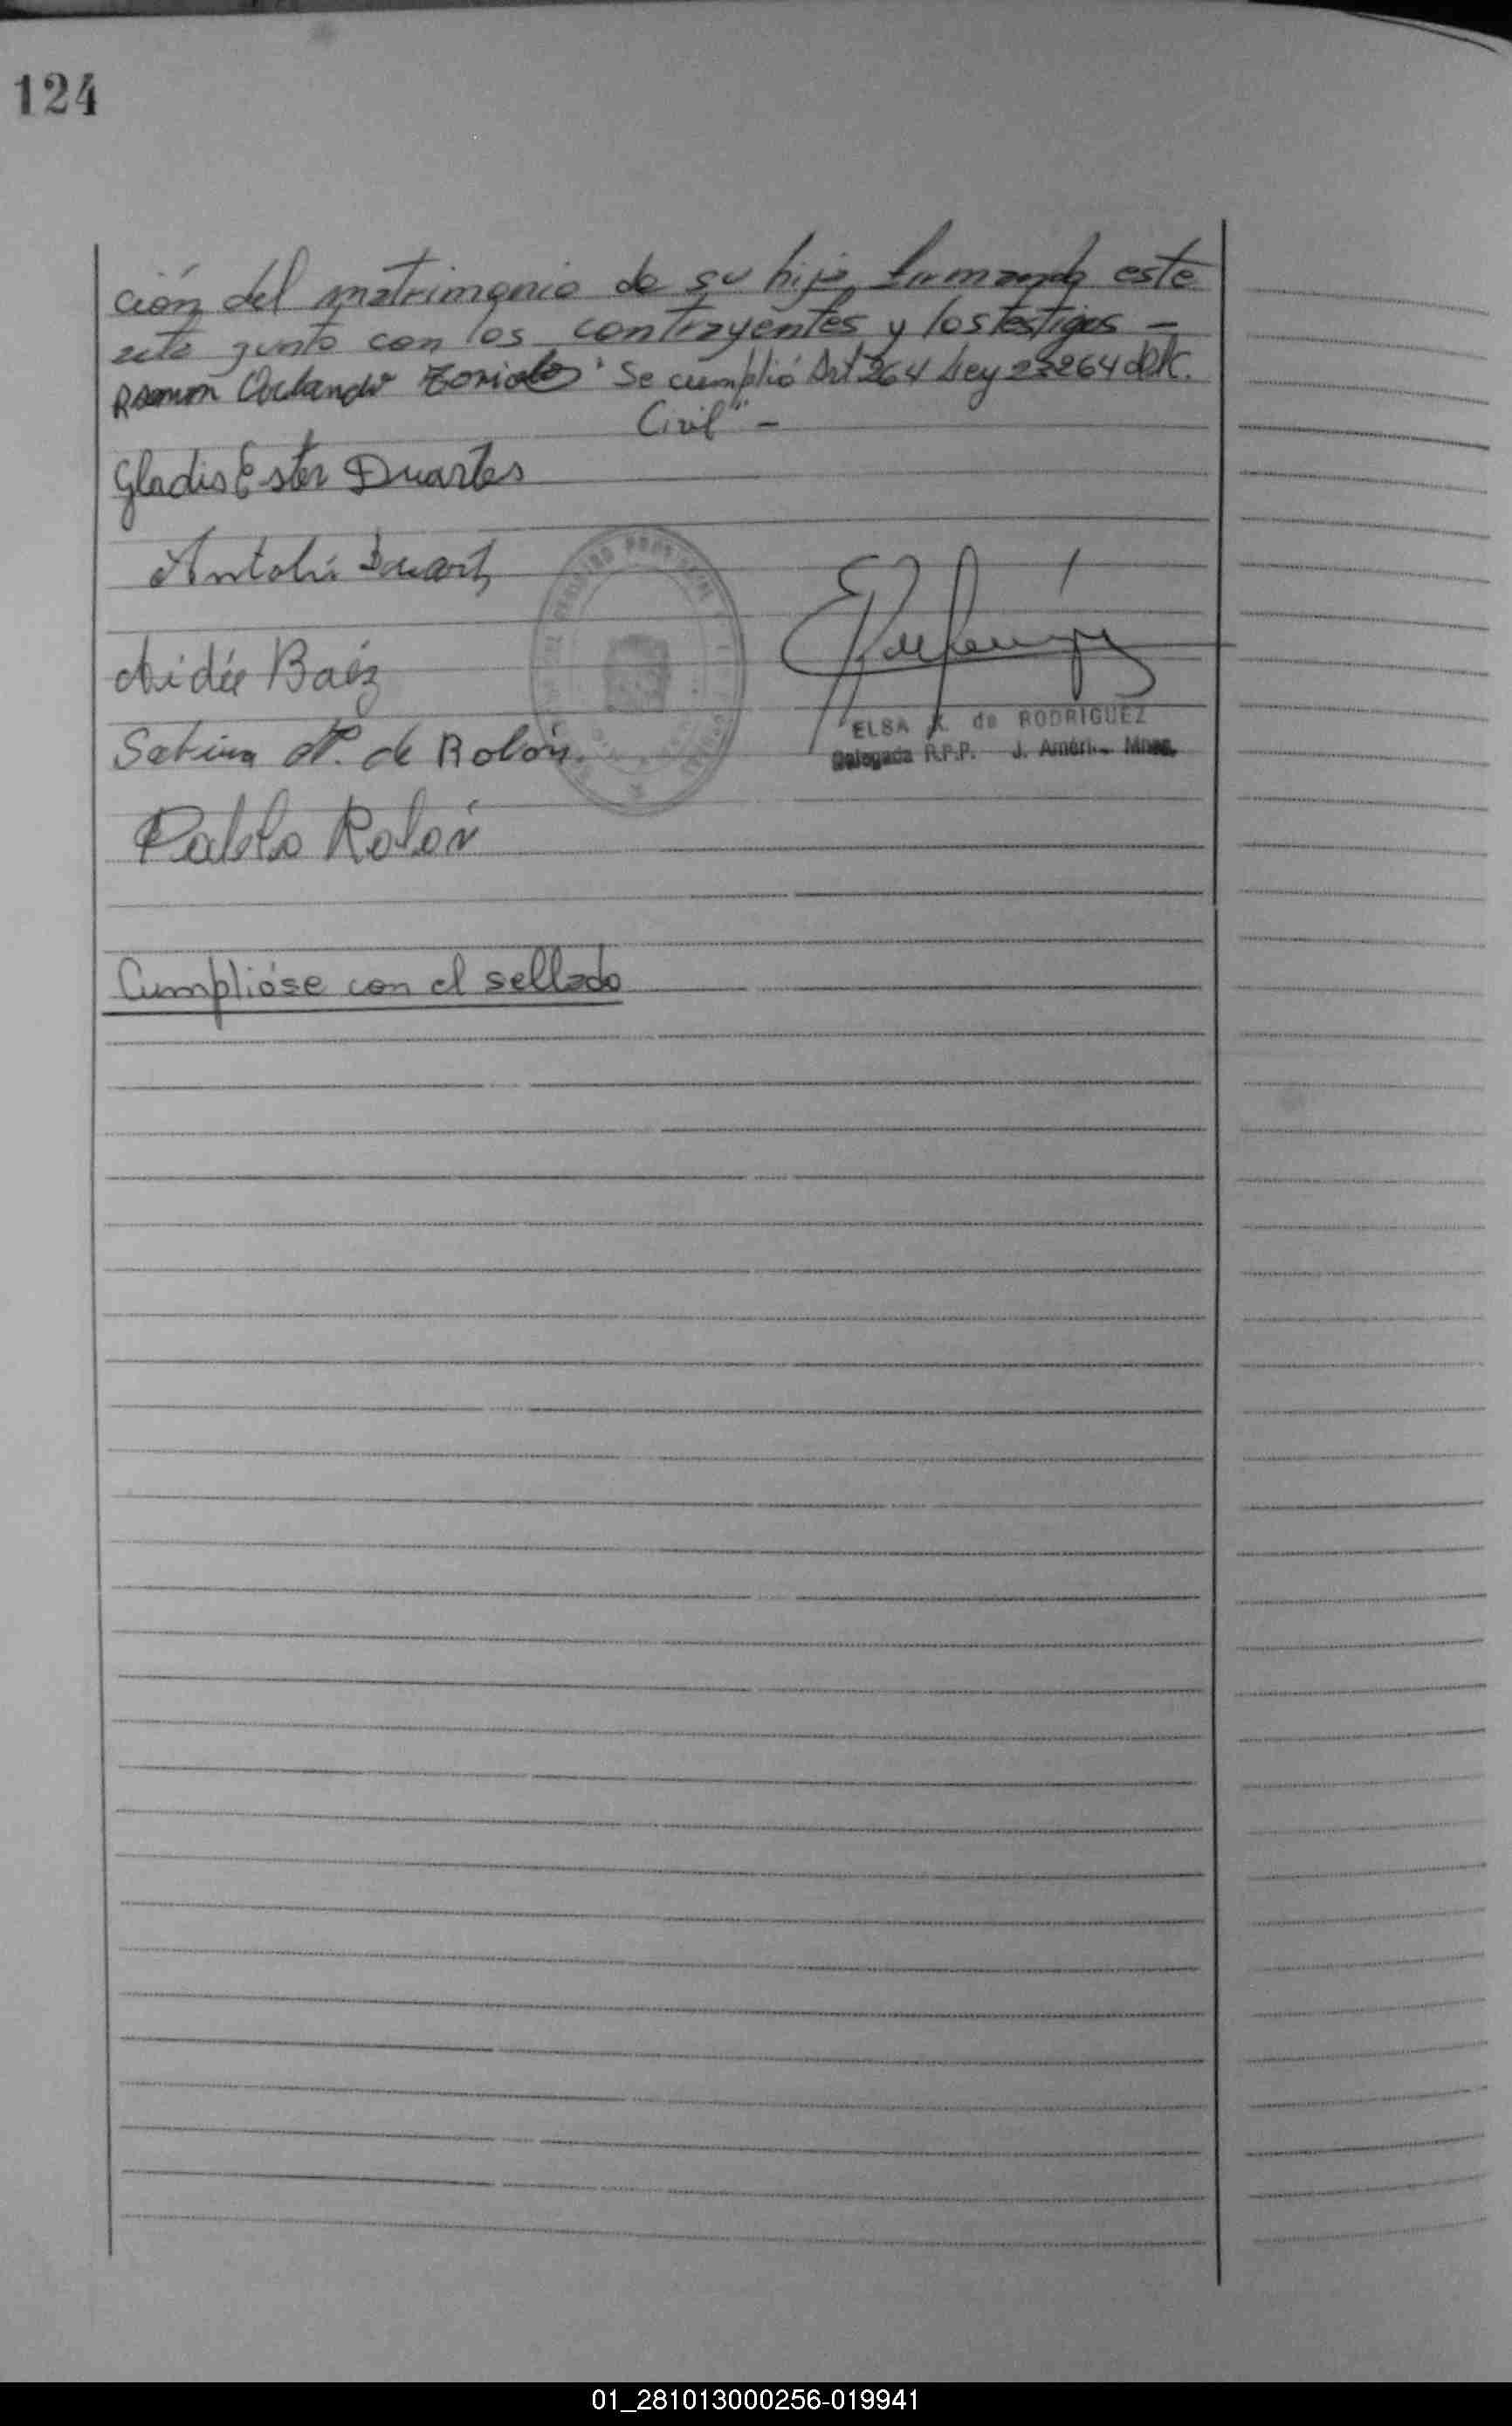 124
ción del matrimonio de su hija, firmando este
acto junto con los contrayentes y los testigos -
Ramon Orlando "Se cumplió Art 264 Ley 23264 del C.
Civil" -
Gladis Ester Duartes
Antolin Duarte
Aidée Baéz
ELSA K. de RODRIGUEZ
Sabina de Rolón.
Delegada R.P.P. J. Améri Mnes.
Pablo Rolón
Cumplióse con el sellado
01_281013000256-019941